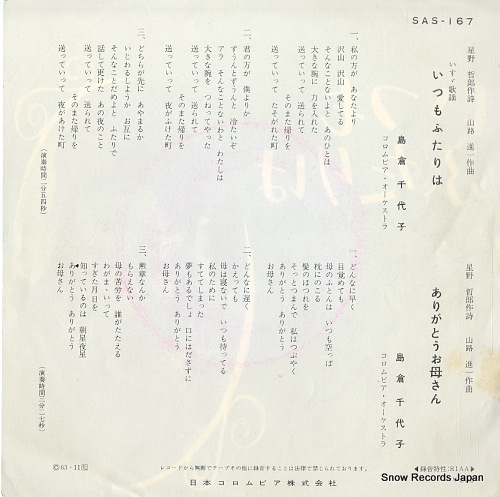 SAS-167
星野 哲郎作詩 山路 進一作曲
いすゞ歌謡
いつもふたりは
島倉 千代子
コロムビア・オーケストラ
一、私の方が あなたより
沢山 沢山 愛してる
そんなことないよと あのひとは
大きな腕に 力を入れた
送っていって 送られて
そのまた帰りを
送っていって たそがれた町
二、君の方が 僕よりか
ずうんとずうんと 冷たいぞ
アラ そんなことないわと わたしは
大きな腕を つねってやった
送っていって 送られて
そのまた帰りを
送っていって 夜がふけた町
三、どちらが先に あやまるか
いじわるしようか お互に
そんなことだめよと ふたりで
話して更けた あの夜のこと
送っていって 送られて
そのまた帰りを
送っていって 夜があけた町
(演奏時間二分五四秒)
星野 哲郎作詩 山路 進一作曲
ありがとうお母さん
島倉 千代子
コロムビア・オーケストラ
一、どんなに早く
目覚めても
母のふとんは いつも空っぽ
枕にのこる
髪のほつれを
そっとつまんで 私はつぶやく
ありがとう ありがとう
お母さん
二、どんなに遅く
かえっても
母は寝ないで いつも待ってる
私のために
すててしまった
夢もあるでしょ 口にはださずに
ありがとう ありがとう
お母さん
三、勲章なんか
もらえない
母の苦労を 誰がたたえる
わがまゝいって
すぎた月日を
知っているのは 朝星夜星
ありがとう ありがとう
お母さん
(演奏時間三分二七秒)
Ⓒ63・11
レコードから無断でテープその他に録音することは法律で禁じられております。
◀録音特性:RIAA▶
日本コロムビア株式会社
Snow Records Japan
www.snowrecords.jp